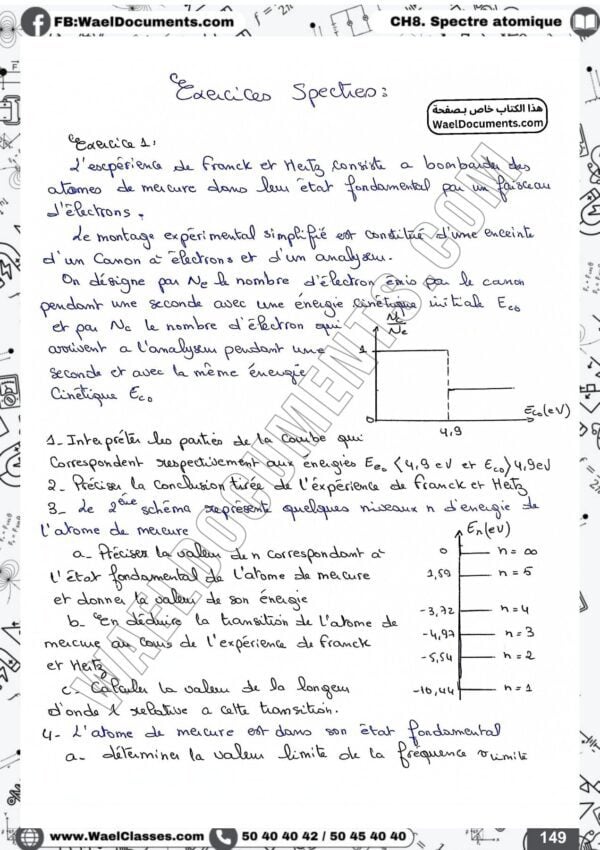 FB:WaelDocuments.com
CH8. Spectre atomique
Exercices Spectres:
هذا الكتاب خاص بصفحة
WaelDocuments.com
Exercice 1:
L'escpérience de Franck et Hertz consiste a bombarder des
atomes de mercure dans leur état fondamental par un faisceau
d'électrons.
Le montage expérimental simplifié est constitué d'une enceinte
d'un Canon à électrons et d'un analyseur.
On désigne par Ne le nombre d'électron émis par le canon
pendant une seconde avec une énergie cinétique initiale Eco
et par Nc le nombre d'électron qui
arrivent a l'analyseur pendant une
seconde et avec la même énergie
Cinétique Eco
Nc/Ne
1
0
4,9
Eco(eV)
1- Interpréter les parties de la courbe qui
Correspondent respectivement aux énergies Eco < 4,9 eV et Eco > 4,9eV
2- Préciser la conclusion tirée de l'expérience de Franck et Hertz
3- Le 2ème schéma représente quelques niveaux n d'energie de
l'atome de mercure
a- Préciser la valeur de n correspondant à
l'état fondamental de l'atome de mercure
et donner la valeur de son énergie
b- En déduire la transition de l'atome de
mercure au cours de l'expérience de Franck
et Hertz
c- Calculer la valeur de la longeur
d'onde λ relative a cette transition.
En(eV)
0 n = ∞
1,59 n = 5
-3,72 n = 4
-4,97 n = 3
-5,54 n = 2
-10,44 n = 1
4- L'atome de mercure est dans son état fondamental
a- déterminer la valeur limite de la fréquence νlimite
WAELDOCUMENTS.COM
www.WaelClasses.com
50 40 40 42 / 50 45 40 40
149